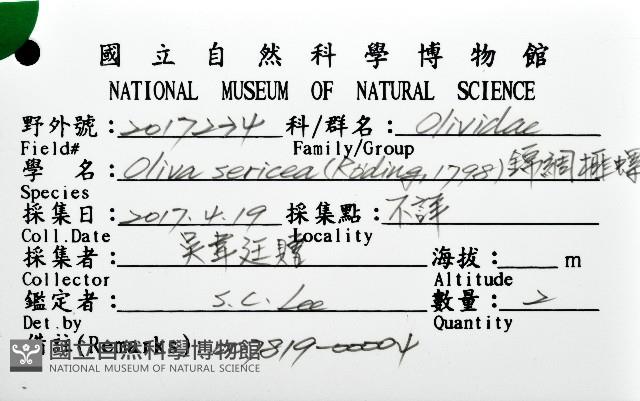 國立自然科學博物館
NATIONAL MUSEUM OF NATURAL SCIENCE
野外號：2017234 科/群名：Olividae
Field# Family/Group
學 名：Oliva sericea (Röding, 1798) 錦綢榧螺
Species
採集日：2017.4.19 採集點：不詳
Coll.Date Locality
採集者：吳韋廷贈 海拔：m
Collector Altitude
鑑定者：S.C. Lee 數量：2
Det.by Quantity
備註(Remarks) 819-00004
國立自然科學博物館
NATIONAL MUSEUM OF NATURAL SCIENCE